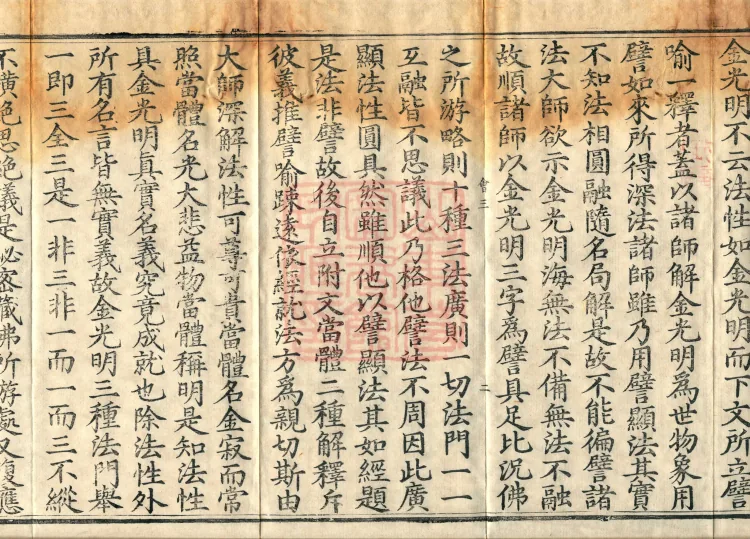 金光明不云法性如金光明而下文所立譬
喻一釋者蓋以諸師解金光明爲世物象用
譬如來所得深法諸師雖乃用譬顯法其實
不知法相圓融隨名局解是故不能徧譬諸
法大師欲示金光明海無法不備無法不融
故順諸師以金光明三字爲譬具足比況佛
會三 二
之所游略則十種三法廣則一切法門一一
互融皆不思議此乃格他譬法不周因此廣
顯法性圓具然雖順他以譬顯法其如經題
是法非譬故後自立附文當體二種解釋斥
彼義推譬喻踈遠依經就法方爲親切斯由
大師深解法性可尊可貴當體名金寂而常
照當體名光大悲益物當體稱明是知法性
具金光明眞實名義究竟成就也除法性外
所有名言皆無實義故金光明三種法門舉
一即三全三是一非三非一而一而三不縱
不橫絕思絕議是祕密藏佛所游處又復應